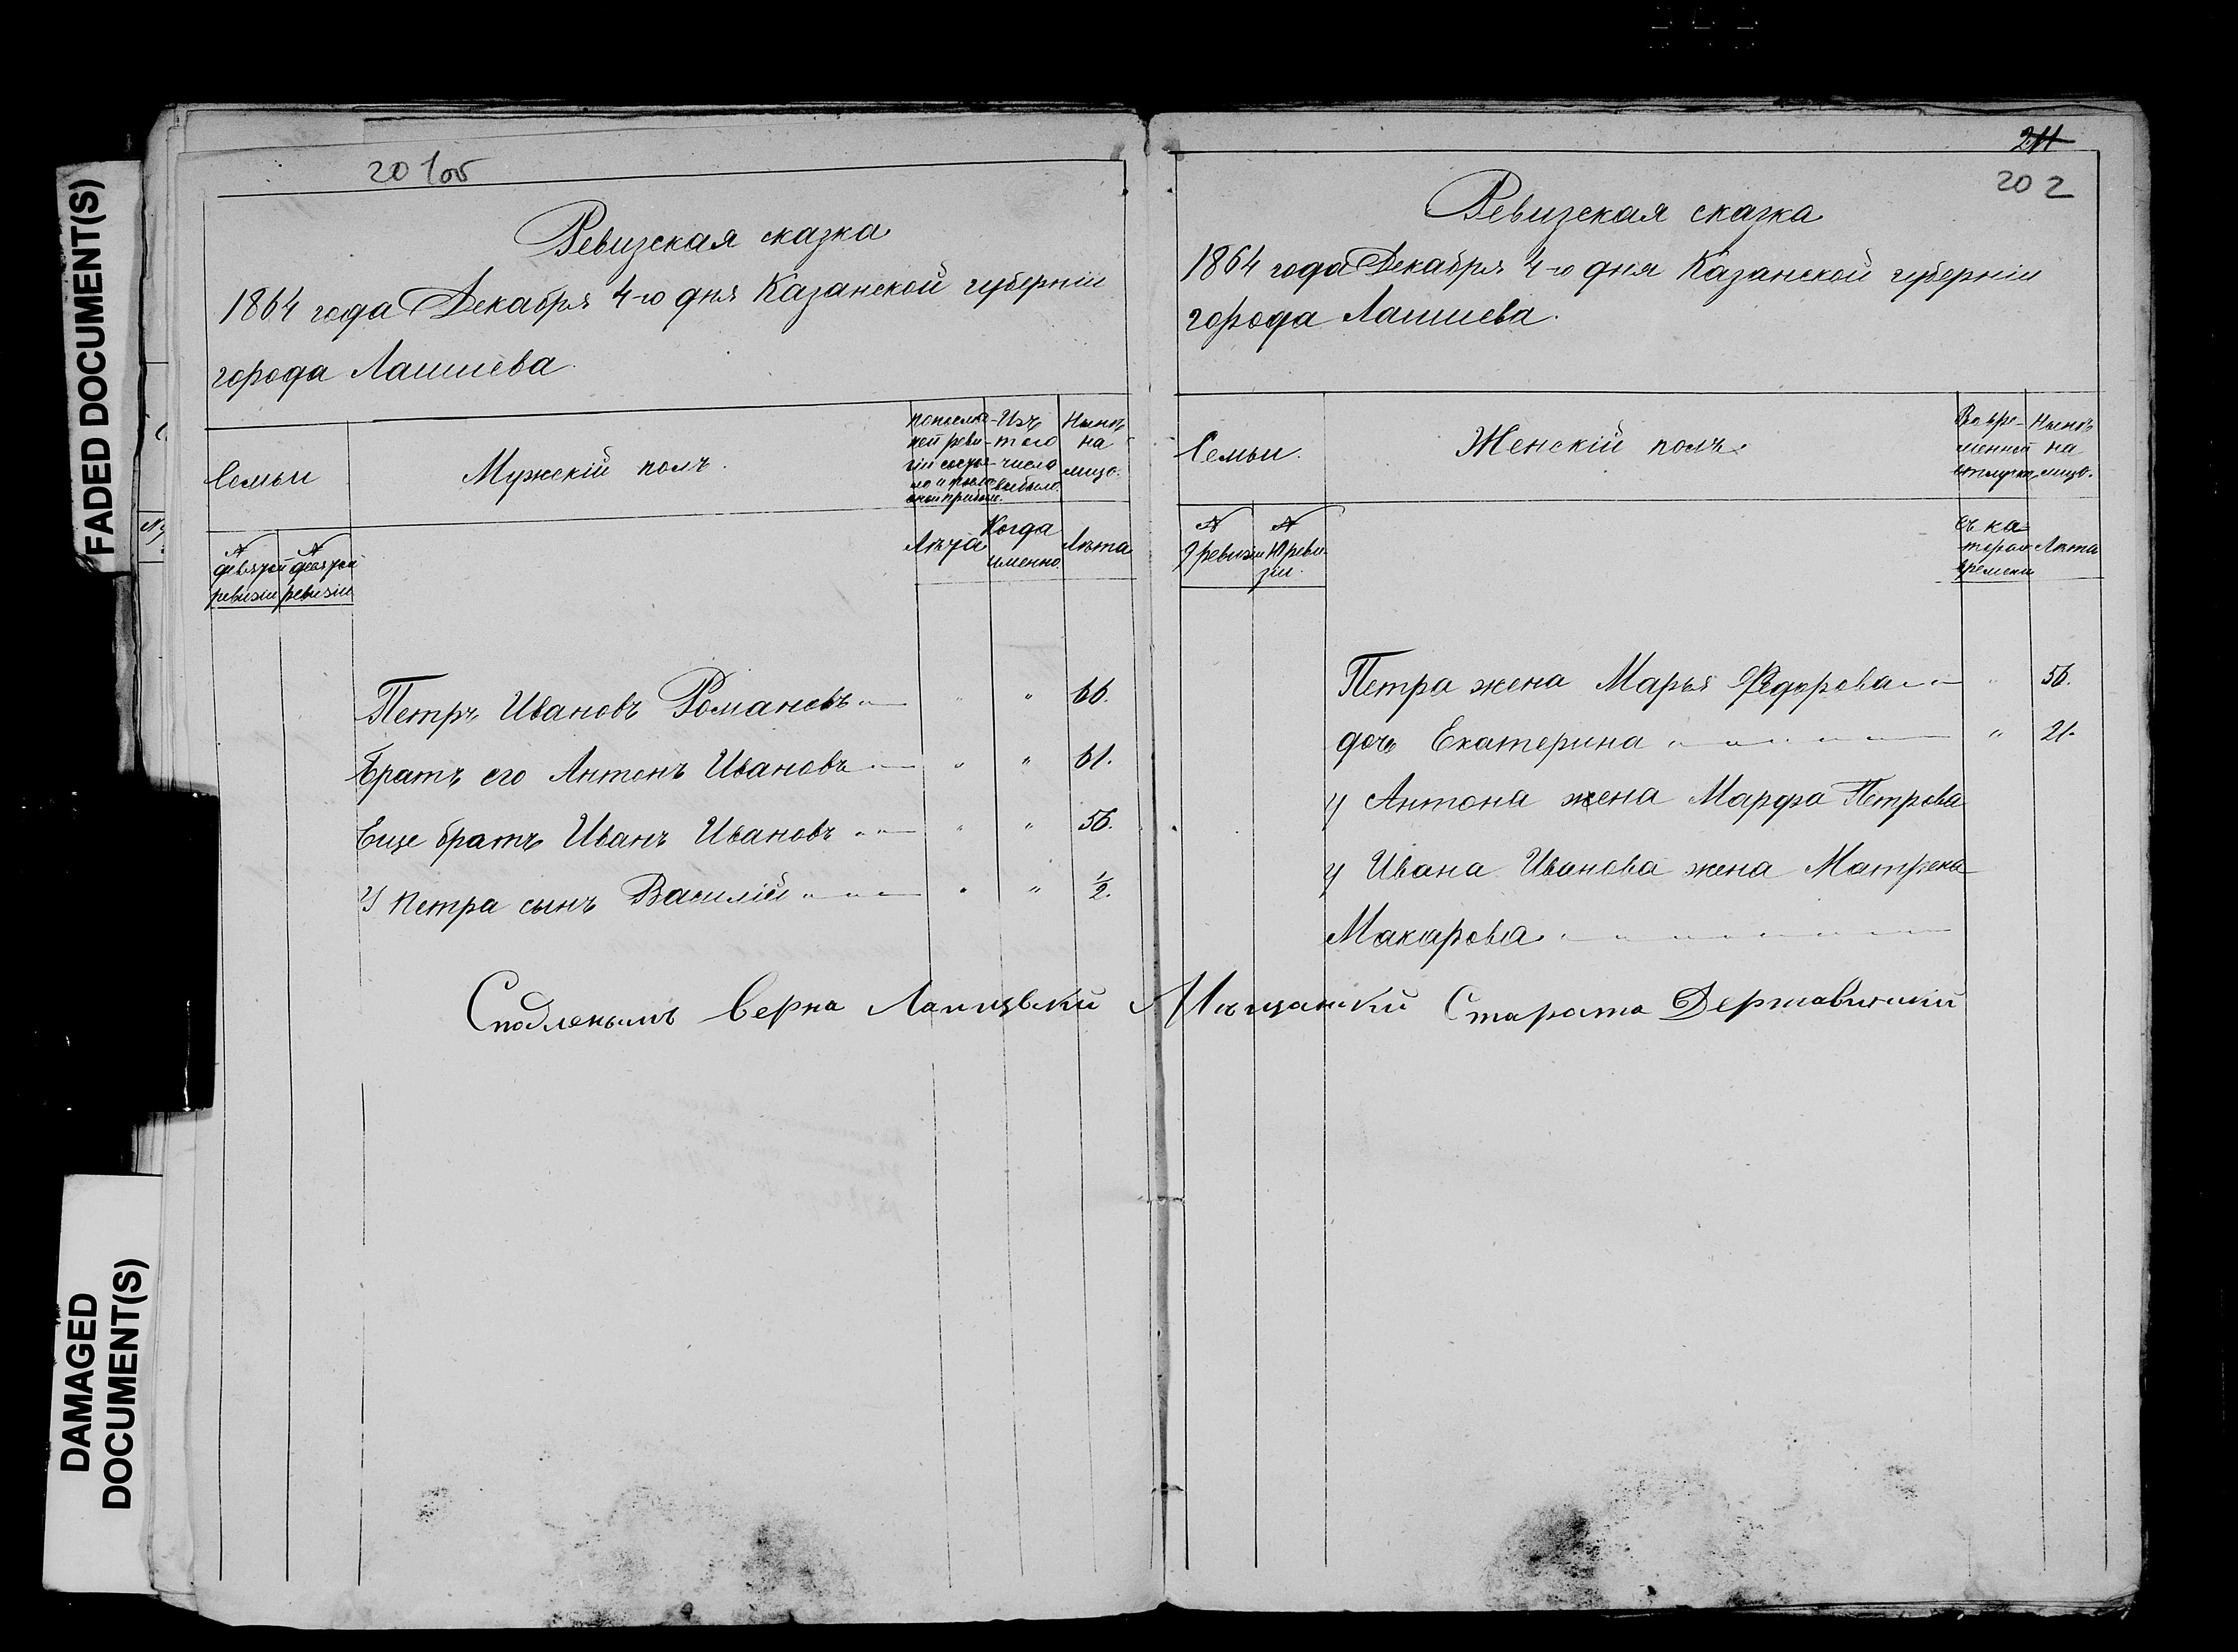 FADED DOCUMENT(S)
DAMAGED
DOCUMENT(S)
201об
Ревизская сказка
1864 года Декабря 4-го дня Казанской губерніи
города Лаишева.
Семьи
Мужскій полъ.
По послед-
ней реви-
зіи состоя-
ло и после
оной прибыло.
Изъ
того
числа
выбыло.
Нынѣ
на
лицо.
№
девятой
ревизіи
№
девятой
ревизіи
Лѣта
Когда
именно.
Лѣта
Петръ Ивановъ Романовъ " " 66.
Братъ его Антонъ Ивановъ " " 61.
Еще братъ Иванъ Ивановъ " " 56.
У Петра сынъ Василій " " ½.
Сподленымъ Верна Лаишвски Мѣщански Стараста Державинский
211
202
Ревизская сказка
1864 года Декабря 4-го дня Казанской губерніи
города Лаишева.
Семьи.
Женскій полъ.
Во вре-
менной
отлучке
Нынѣ
на
лицо.
№
9 ревизіи
№
10 реви-
зіи.
Съ ка-
тораго
времени
Лѣта
Петра жена Марья Федорова " 56.
дочь Екатерина " 21.
у Антона жена Марфа Петрова
у Ивана Иванова жена Матрена
Макарова